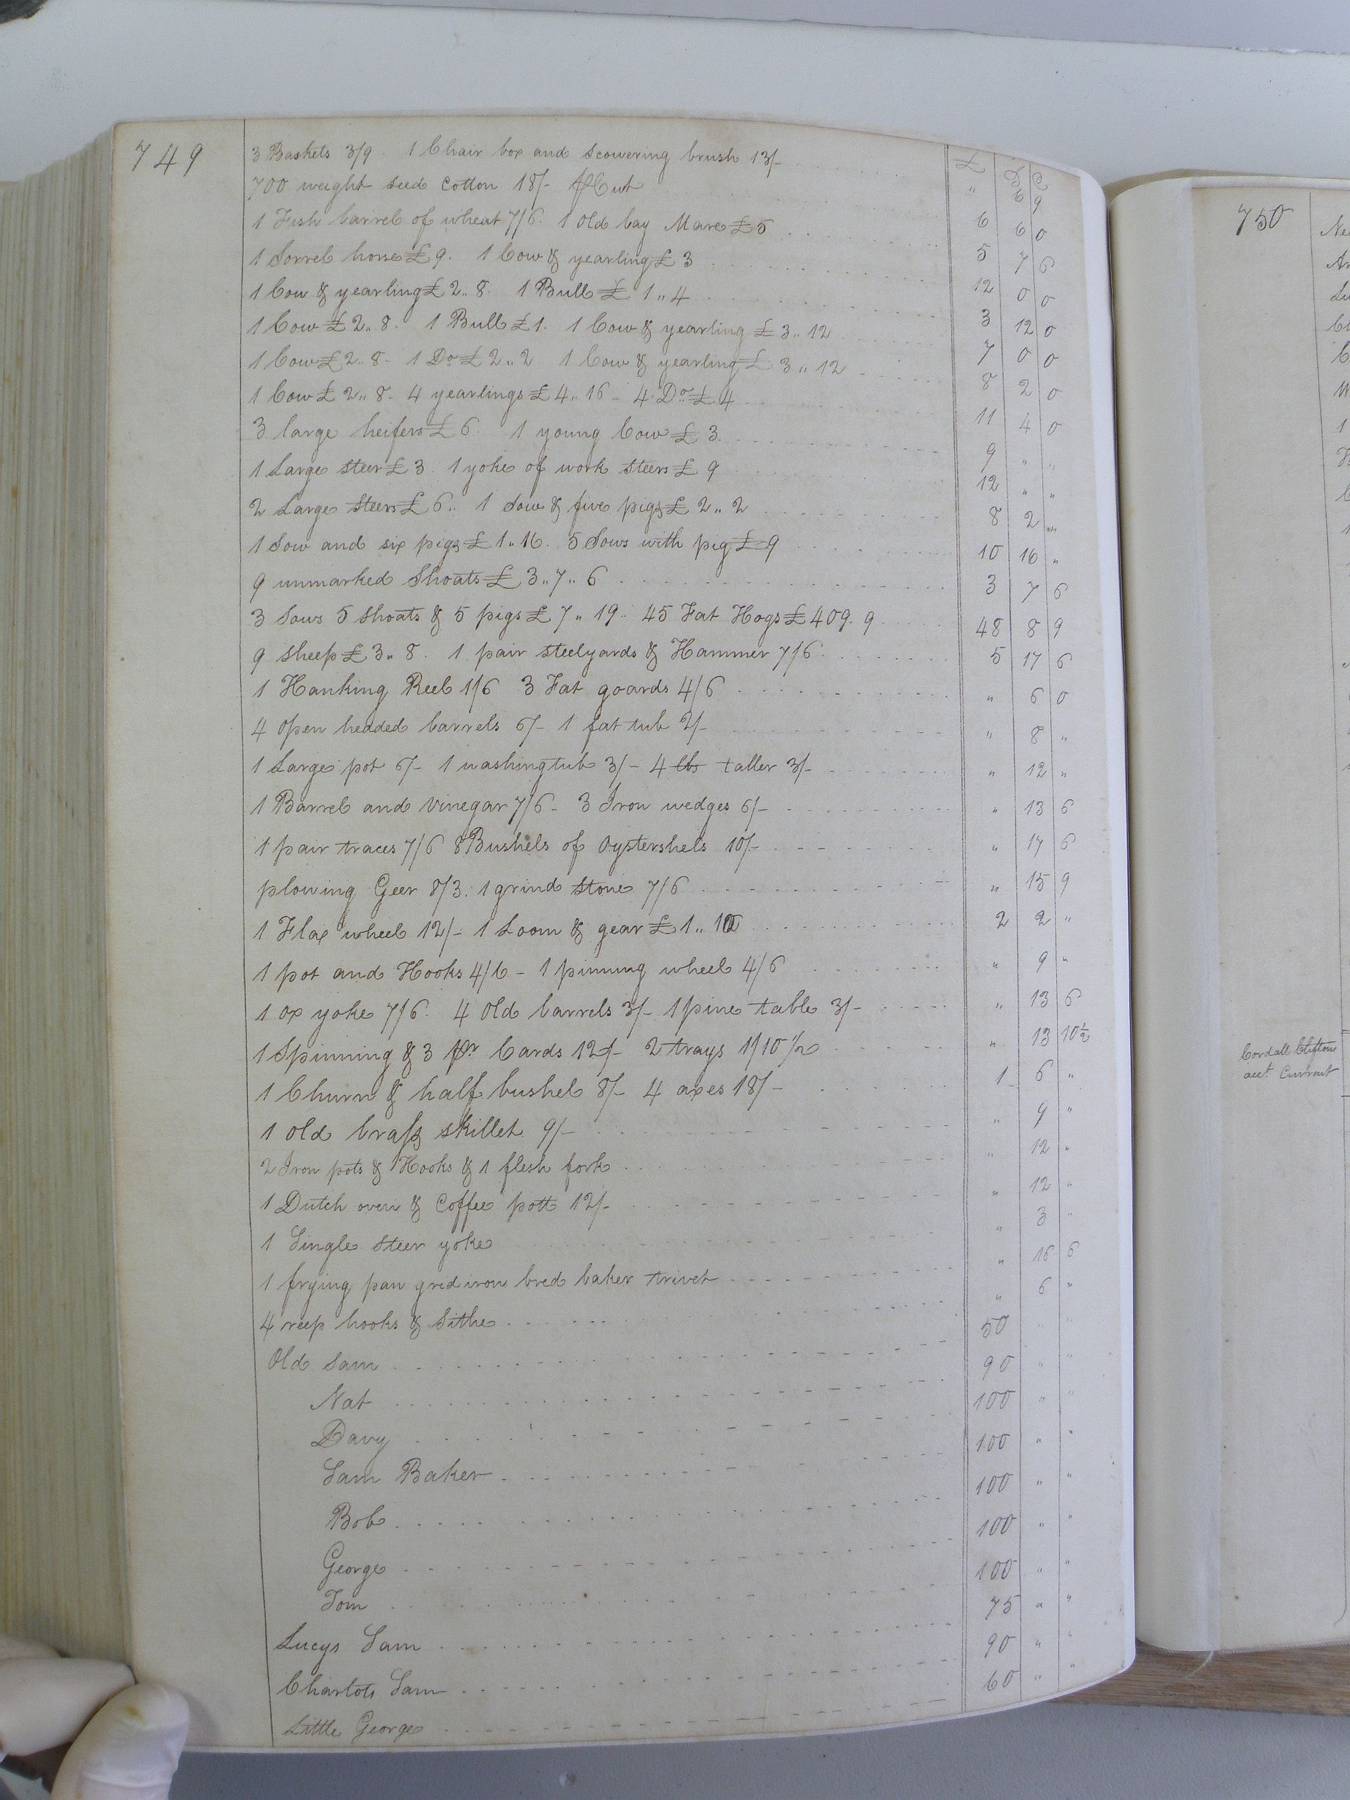 749
£ S D
3 Baskets 3/9 1 Chair box and scowering brush 13/- " 6 9
700 weight seed cotton 18/- pCwt 6 6 0
1 Fish barrel of wheat 7/6 1 old bay Mare £5 5 7 6
1 Sorrel horse £9. 1 Cow & yearling £3 12 0 0
1 Cow & yearling £2,,8. 1 Bull £1,,4 3 12 0
1 Cow £2,,8. 1 Bull £1. 1 Cow & yearling £3,,12 7 0 0
1 Cow £2,,8. 1 Do £2,,2 1 Cow & yearling £3,,12 8 2 0
1 Cow £2,,8. 4 yearlings £4,,16 - 4 Do £4 11 4 0
3 large heifers £6. 1 young Cow £3. 9 " "
1 Large steer £3. 1 yoke of work steers £9 12 " "
2 Large steers £6,, 1 sow & five pigs £2,,2 8 2 "
1 sow and six pigs £1,,16. 5 Sows with pig £9 10 16 "
9 unmarked Shoats £3,,7,,6 3 7 6
3 Sows 5 shoats & 5 pigs £7,,19. 45 Fat Hogs £409.9 48 8 9
9 sheep £3,,8. 1 pair steelyards & Hammer 7/6 5 17 6
1 Hanking Reel 1/6 3 Fat goards 4/6 " 6 0
4 open headed barrels 6/- 1 fat tub 2/- " 8 "
1 Large pot 6/- 1 washingtub 3/- 4 lbs taller 3/- " 12 "
1 Barrel and vinegar 7/6 - 3 Iron wedges 6/- " 13 6
1 pair traces 7/6 8 Bushels of oystershels 10/- " 17 6
plowing Geer 8/3. 1 grind stone 7/6 " 15 9
1 Flax wheel 12/- 1 Loom & gear £1,,10 2 2 "
1 pot and Hooks 4/6 - 1 pinning wheel 4/6 " 9 "
1 ox yoke 7/6. 4 old barrels 3/- 1 pine table 3/- " 13 6
1 Spinning & 3 pr Cards 12/- 2 trays 1/10 1/2 " 13 10 1/2
1 Churn & half bushel 8/- 4 axes 18/- 1 6 "
1 old brass skillet 9/- " 9 "
2 Iron pots & Hooks & 1 flesh fork " 12 "
1 Dutch oven & coffee pott 12/- " 12 "
1 Single steer yoke " 3 "
1 frying pan gridiron bred baker trivet " 16 6
4 reep hooks & Sithe " 6 "
Old Sam 50 " "
Nat 90 " "
Davy 100 " "
Sam Baker 100 " "
Bob 100 " "
George 100 " "
Tom 100 " "
Lucys Sam 75 " "
Charlots Sam 90 " "
Little George 60 " "
750
Cordall Clifton
acct. Current